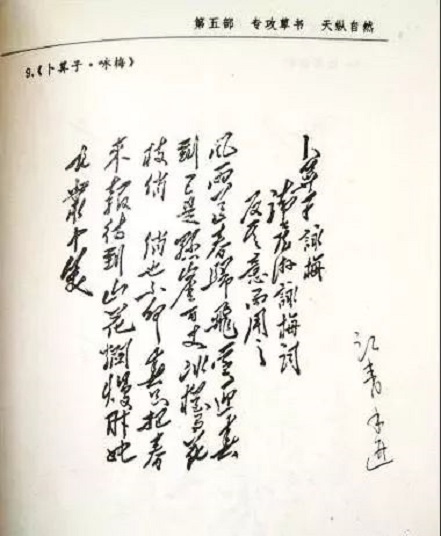 第五部 专攻草书 天纵自然
9.《卜算子·咏梅》
卜算子 詠梅
读陆游詠梅词
反其意而用之
风雨送春歸飛雪迎春
到已是懸崖百丈冰犹有花
枝俏 俏也不争春只把春
来报待到山花爛熳时她
在叢中笑
江青手迹